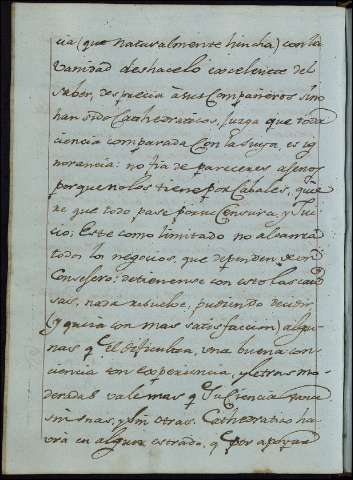 cia (que naturalmente hincha) con la
vanidad deshace lo excelente del
saber, desprecia à sus Compañeros sino
han sido Cathedraticos, juzga que toda
ciencia comparada Con la suya, es ig
norancia: no fia de pareceres agenos
porque no los tiene por Cabales, quie
re que todo pase por su Censura, y Jui
cio; Este como limitado no alcanza
todos los negocios, que dependen de un
Consejero: detienense con esto las cau
sas, nada resuelve, pudiendo decidir
(y quiza con mas satisfaccion) algu
nas q el dificulta, una buena con
ciencia con experiencia, y letras mo
deradas vale mas q Su Ciencia
sin mas, y sin otras. Cathedratico ha
vrà en algun estrado, q por apoyar